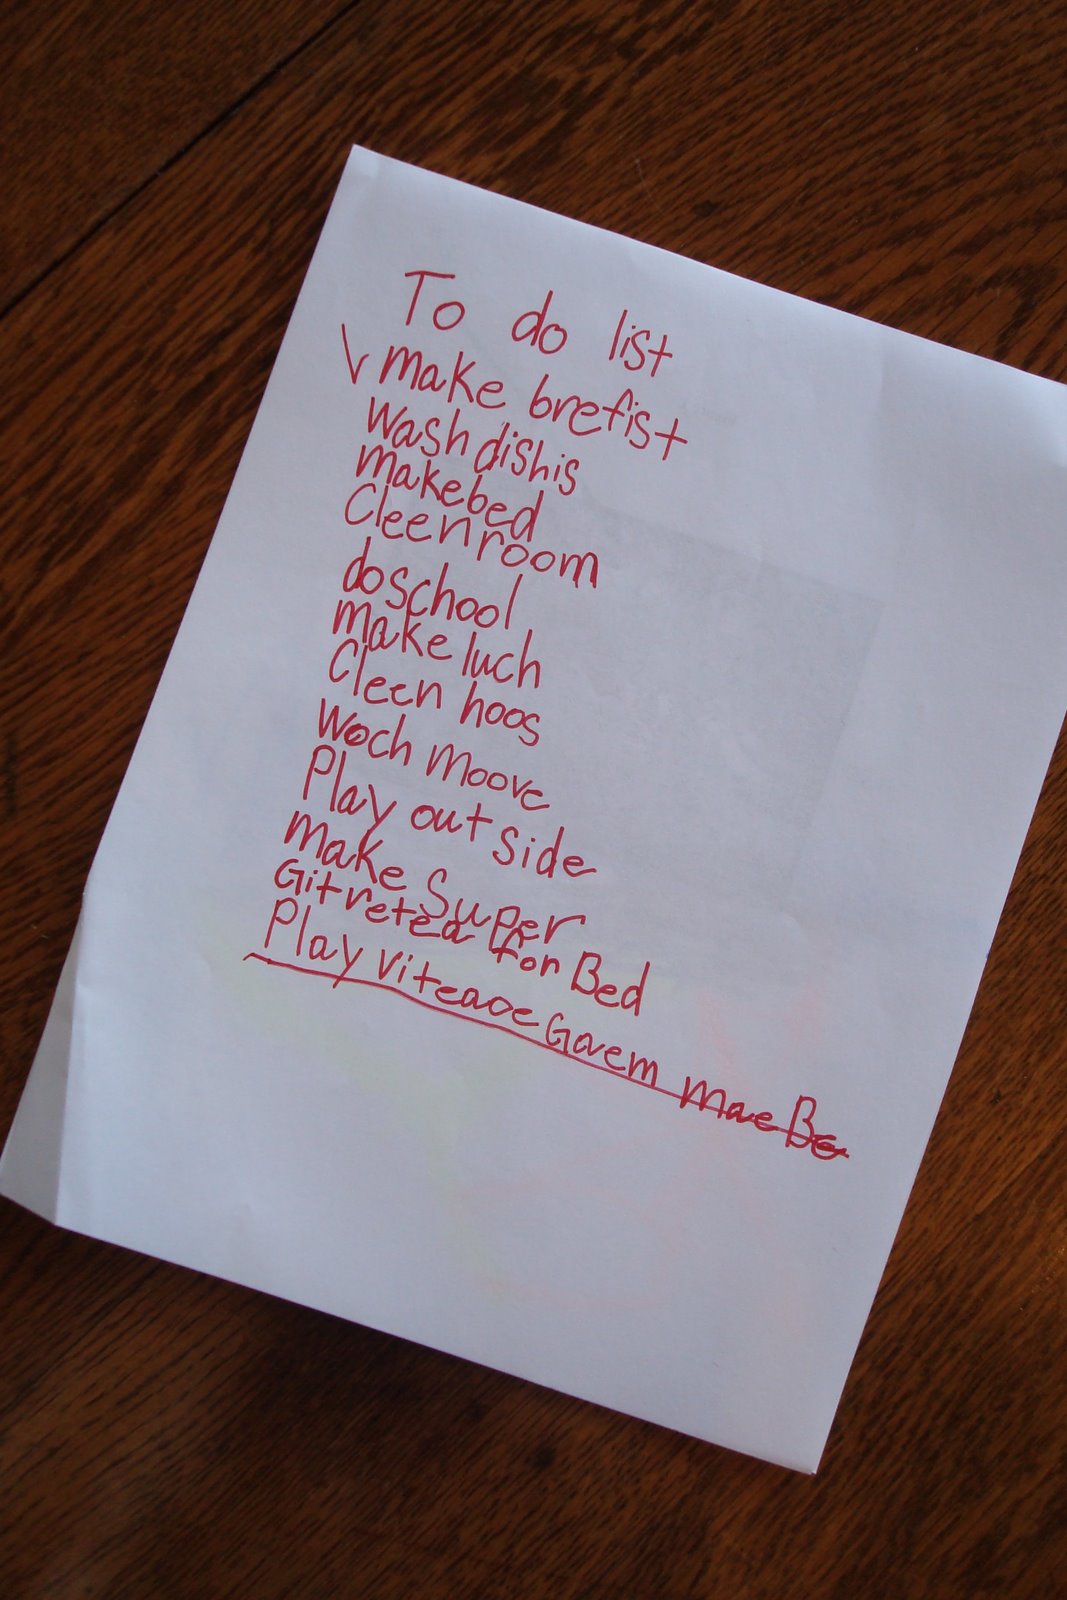 To do list
make brefist
wash dishis
make bed
Cleen room
do school
make luch
Cleen hoos
Woch moove
Play out side
make Super
Git reted for Bed
Play viteaoe Gaem mae Be